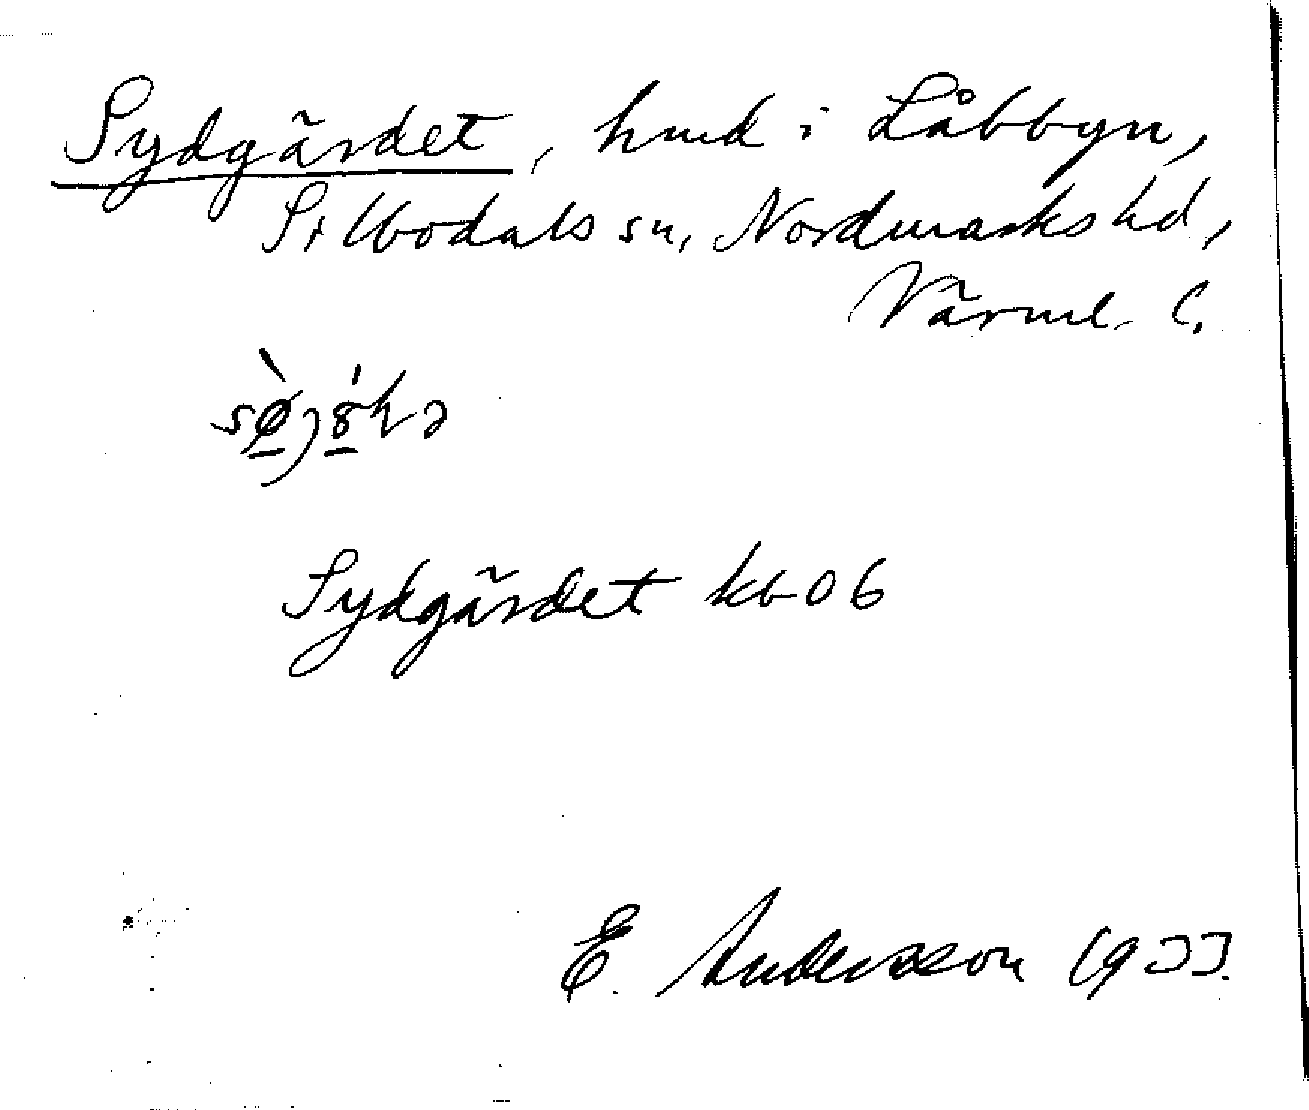 Sydgärdet, hmd i Låbbyn,
Sillbodals sn, Nordmarks hd,
Värml. l.
Sydgärdet kb 06
E. Andersson 1933.